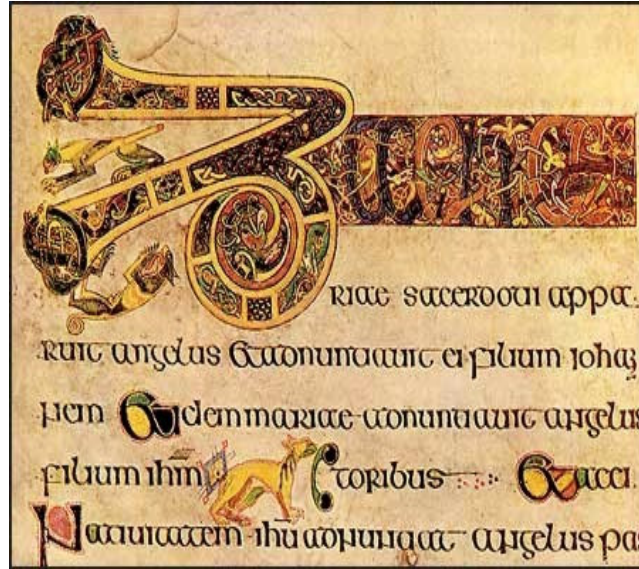 Zacha
riae sacerdoti appa
ruit angelus Et adnuntiauit ei filium ioha
nem Et idem mariae adnuntiauit angelus
filium ihm toribus Et acci
Natiuitatem ihu adnuntiat angelus pas